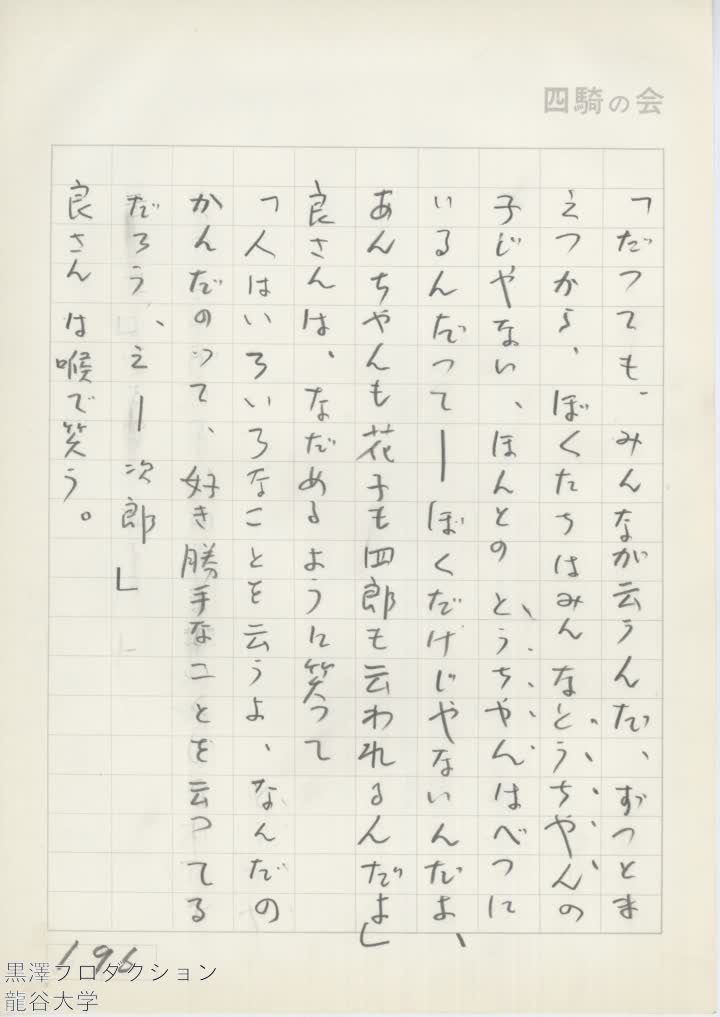 四騎の会
「だつても、みんなが云うんだ、ずつとま
えつから、ぼくたちはみんなとうちやんの
子じやない、ほんとのとうちやんはべつに
いるんだつて―ぼくだけじやないんだよ、
あんちやんも花子も四郎も云われるんだよ」
良さんは、なだめるように笑つて
「人はいろいろなことを云うよ、なんだの
かんだのつて、好き勝手なことを云つてる
だろう、え―次郎」
良さんは喉で笑う。
196
黒澤プロダクション
龍谷大学